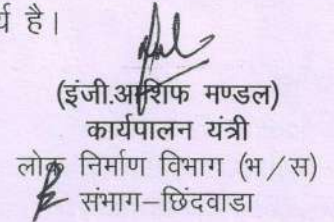 र्य है।
(इंजी.आशिफ मण्डल)
कार्यपालन यंत्री
लोक निर्माण विभाग (भ/स)
संभाग-छिंदवाडा